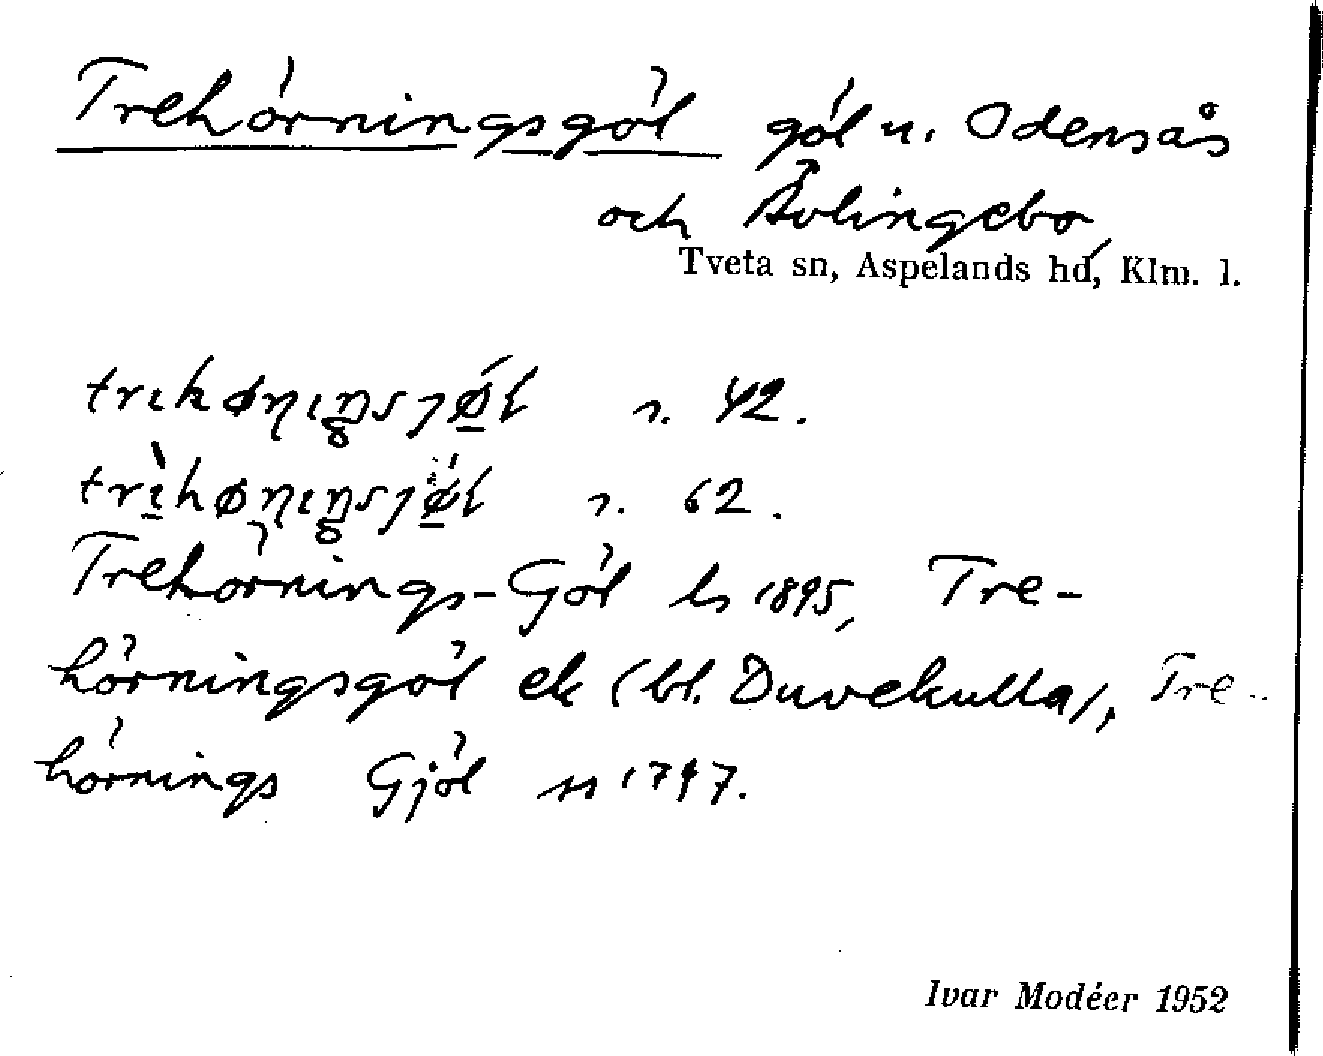 Trehörningsgöl göl u. Odensås
och Ävlingebo,
Tveta sn, Aspelands hd, Klm. l.
r. 42.
r. 62.
Trehörnings-Göl ls 1895, Tre-
hörningsgöl ek (bl. Duvekulla), Tre-
hörnings Gjöl ss 1747.
Ivar Modéer 1952